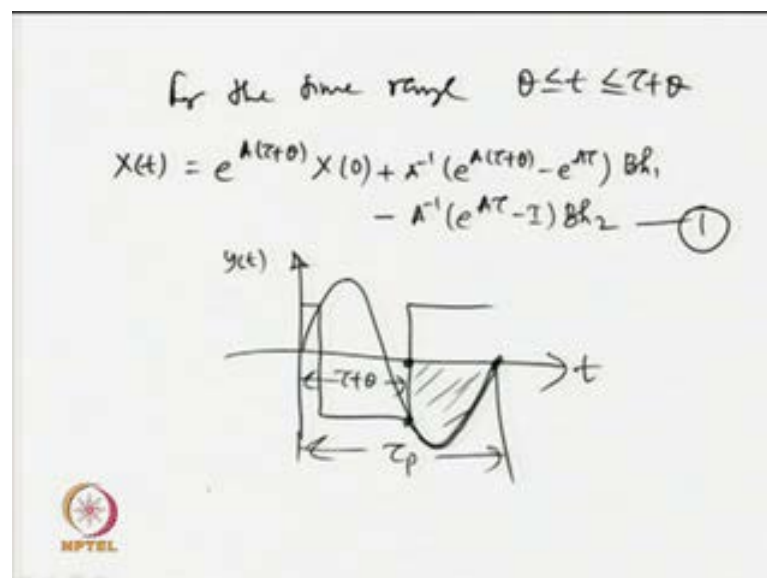 for the time range θ ≤ t ≤ τ+θ
X(t) = e^{A(τ+θ)} X(0) + A^{-1} (e^{A(τ+θ)} - e^{Aτ}) Bh_1
- A^{-1} (e^{Aτ} - I) Bh_2 — ①
y(t)
τ+θ
t
τ_p
NPTEL